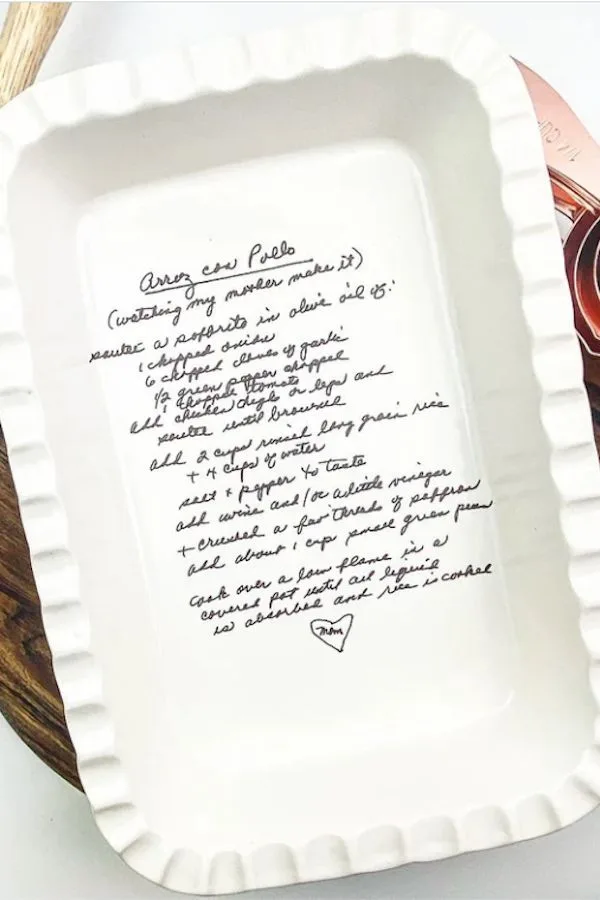 Arroz con Pollo
(watching my mother make it)
sauter a soffrito in olive oil of:
1 chopped onion
6 chopped cloves of garlic
1/2 green pepper chopped
1 chopped tomato
add chicken thighs or legs and
sauter until browned
add 2 cups rinsed long grain rice
+ 4 cups of water
salt + pepper to taste
add wine and/or a little vinegar
+ crushed a few threads of saffron
add about 1 cup small green peas
cook over a low flame in a
covered pot until all liquid
is absorbed and rice is cooked
Mom
1/4 CUP